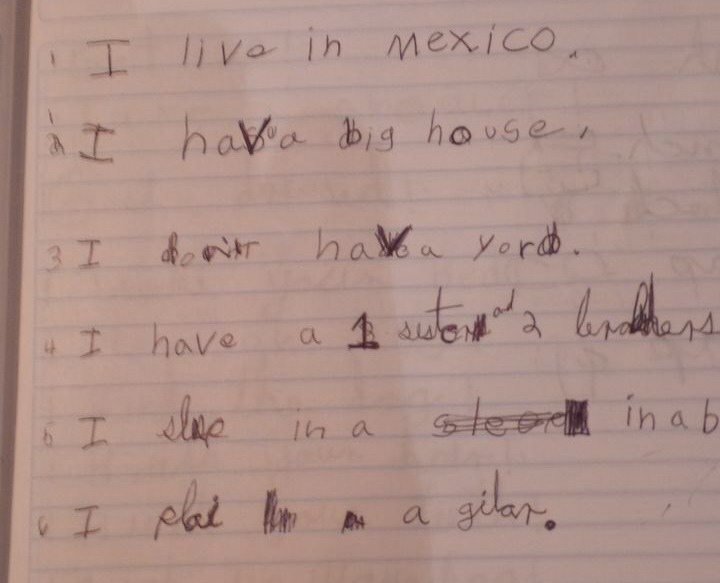 1 I live in mexico.
I have a big house,
3 I don't have a yord.
4 I have a 1 sister and 2 brathers
5 I slee in a in a b
6 I plai a gitar.